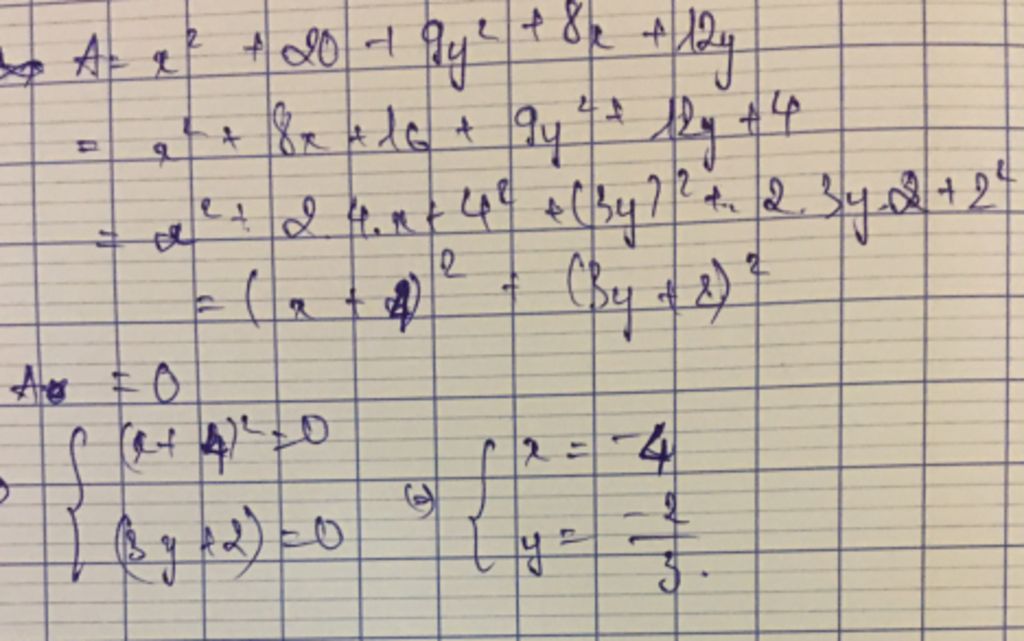 A = x² + 20 + 9y² + 8x + 12y
= x² + 8x + 16 + 9y² + 12y + 4
= x² + 2.4.x + 4² + (3y)² + 2.3y.2 + 2²
= (x + 4)² + (3y + 2)²
A = 0
{ (x + 4)² = 0 (=) { x = -4
(3y + 2) = 0 y = -2/3.